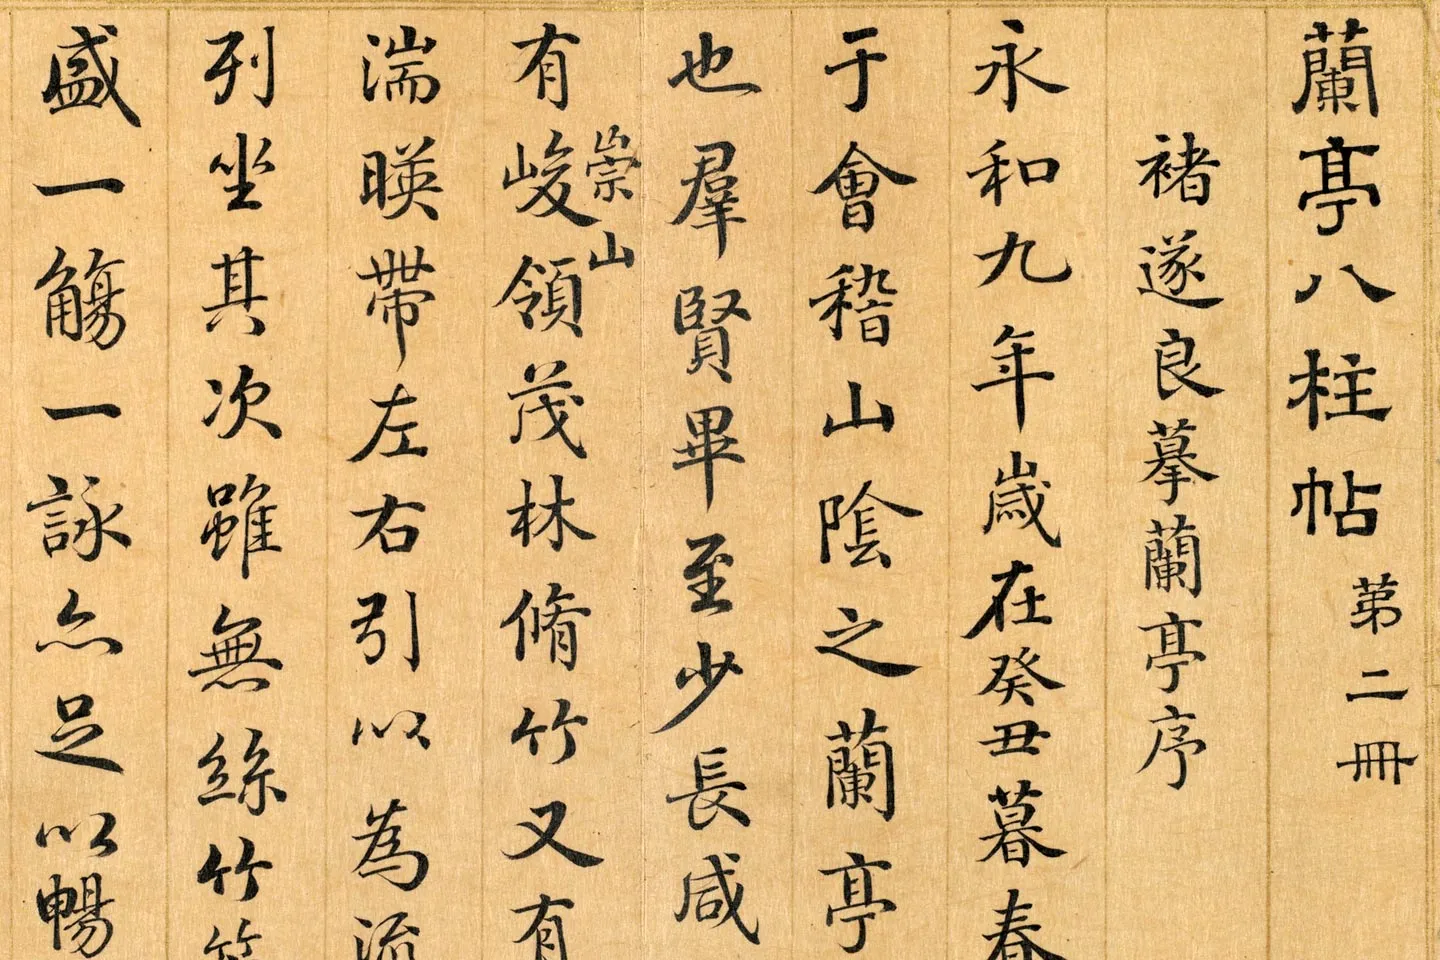 蘭亭八柱帖 苐二冊
褚遂良摹蘭亭序
永和九年歲在癸丑暮春
于會稽山陰之蘭亭
也羣賢畢至少長咸
有崇山峻領茂林脩竹又有
湍暎帶左右引以為流
列坐其次雖無絲竹
盛一觴一詠亦足以暢